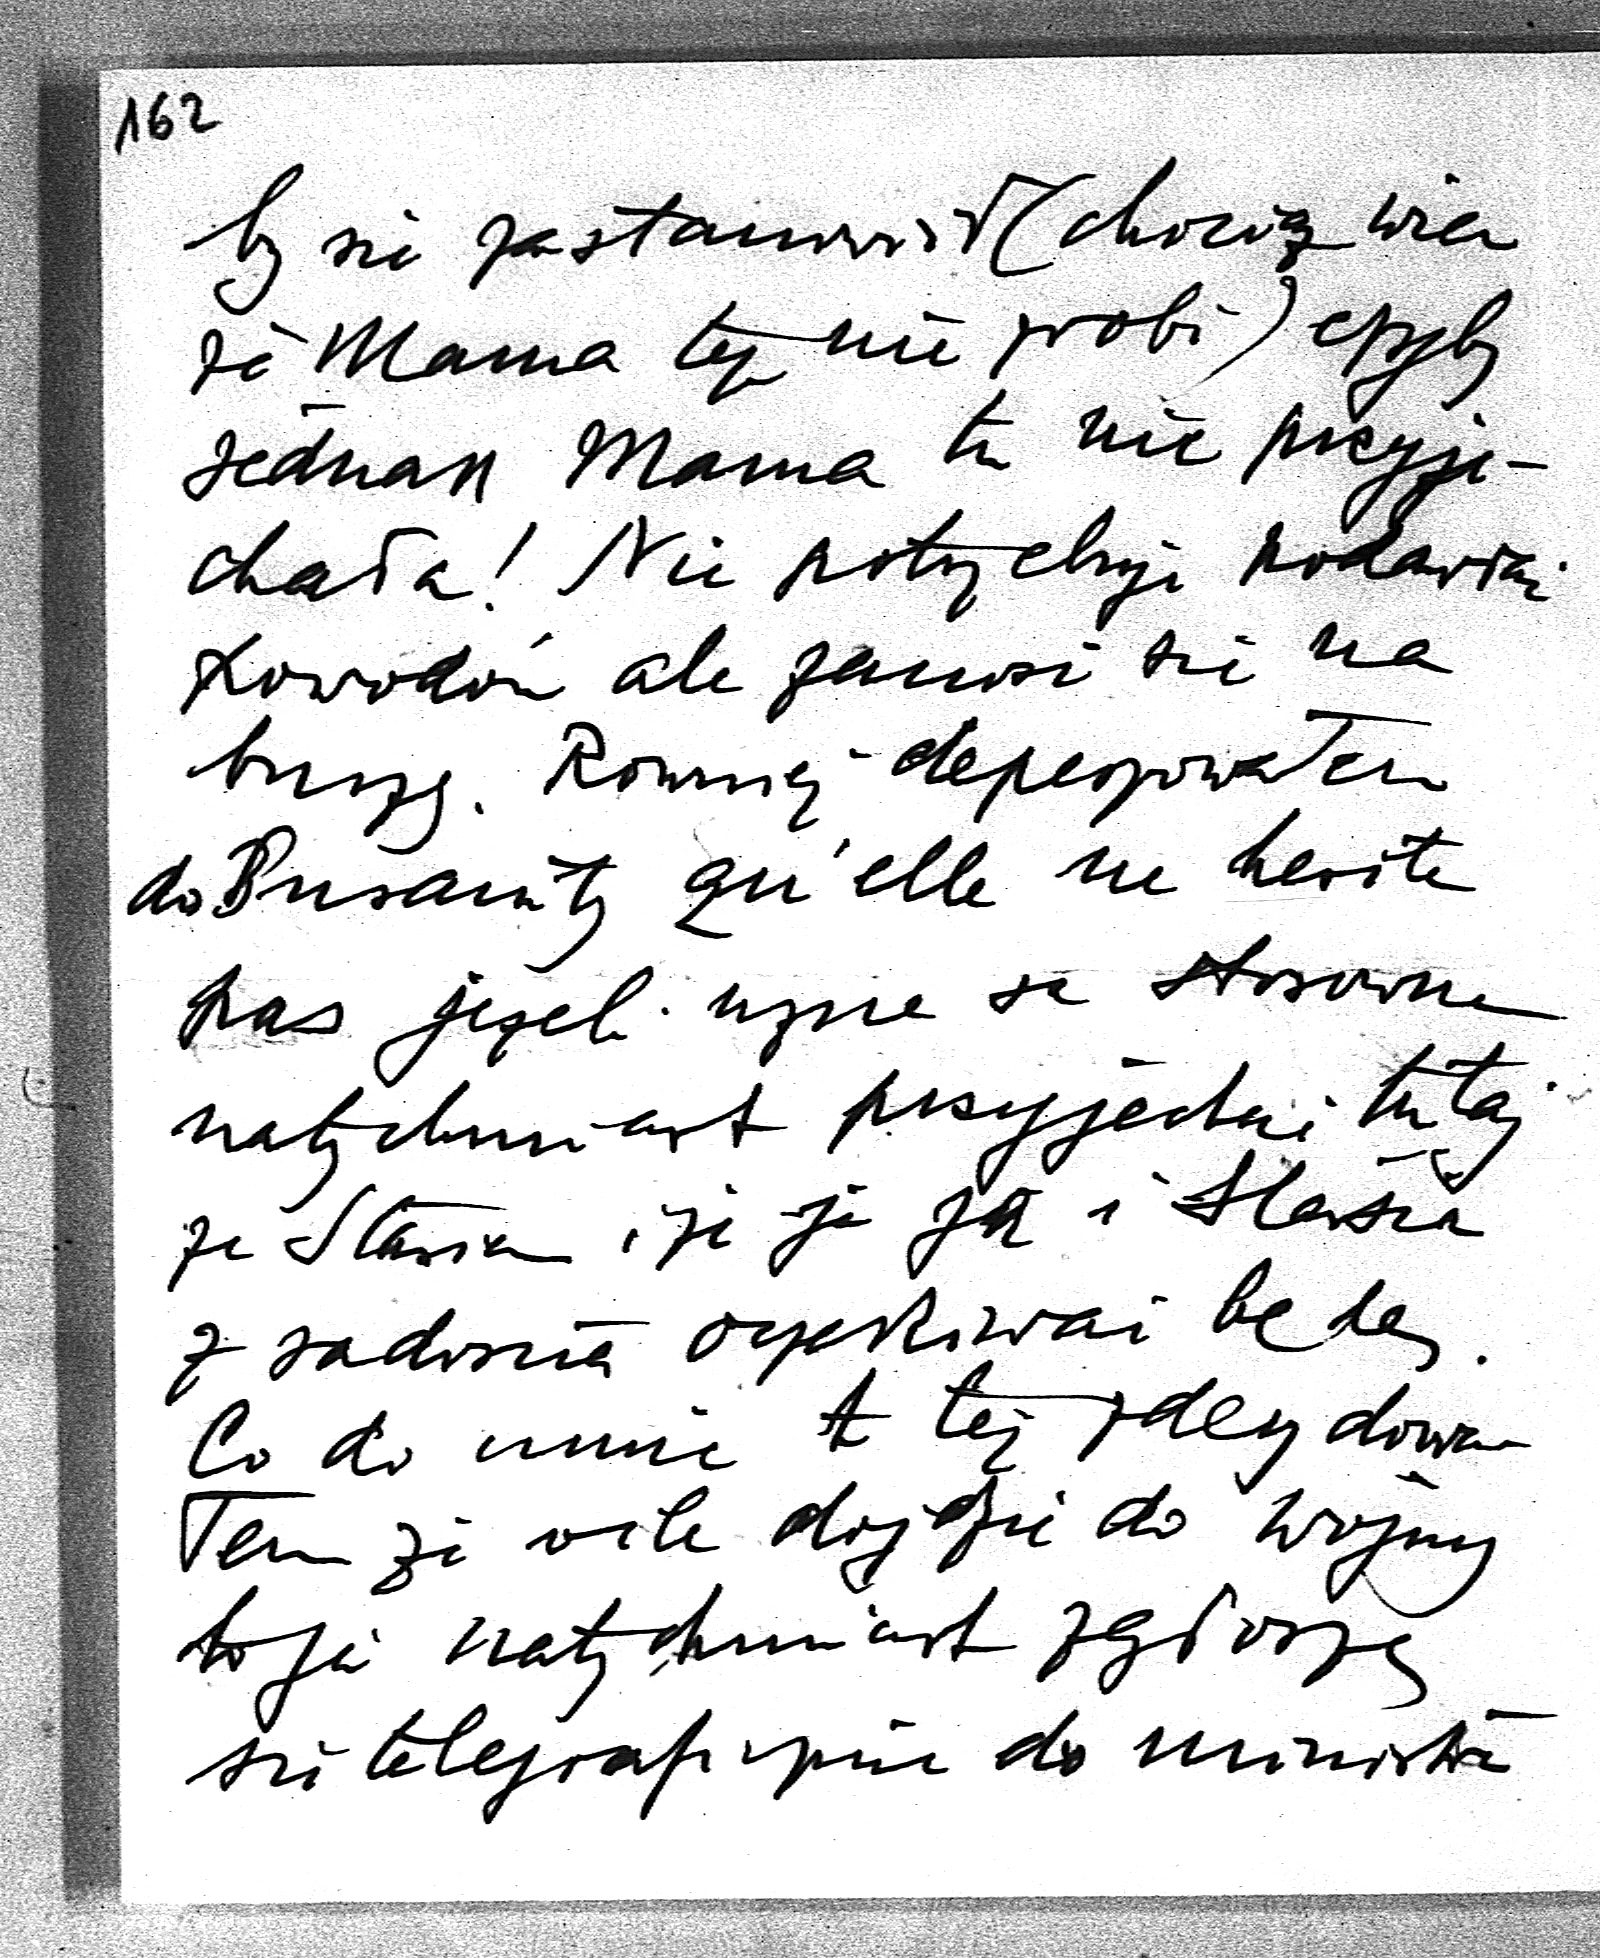 162
by się zastanowił (chociaż wiem
że Mama tego nie zrobi) czyby
jednak Mama tu nie przyje-
chała! Nie potrzebuję podawać
powodów ale zanosi się na
burzę. Również depeszowałem
do qu'elle ne hesite
pas jeżeli uzna za stosowne
natychmiast przyjechać tutaj
ze Stasiem i że ja ją i Stasia
z radością oczekiwać będę.
Co do mnie to też zdecydowa-
łem że o ile dojdzie do wojny
to ja natychmiast zgłoszę
się telegraficznie do ministra